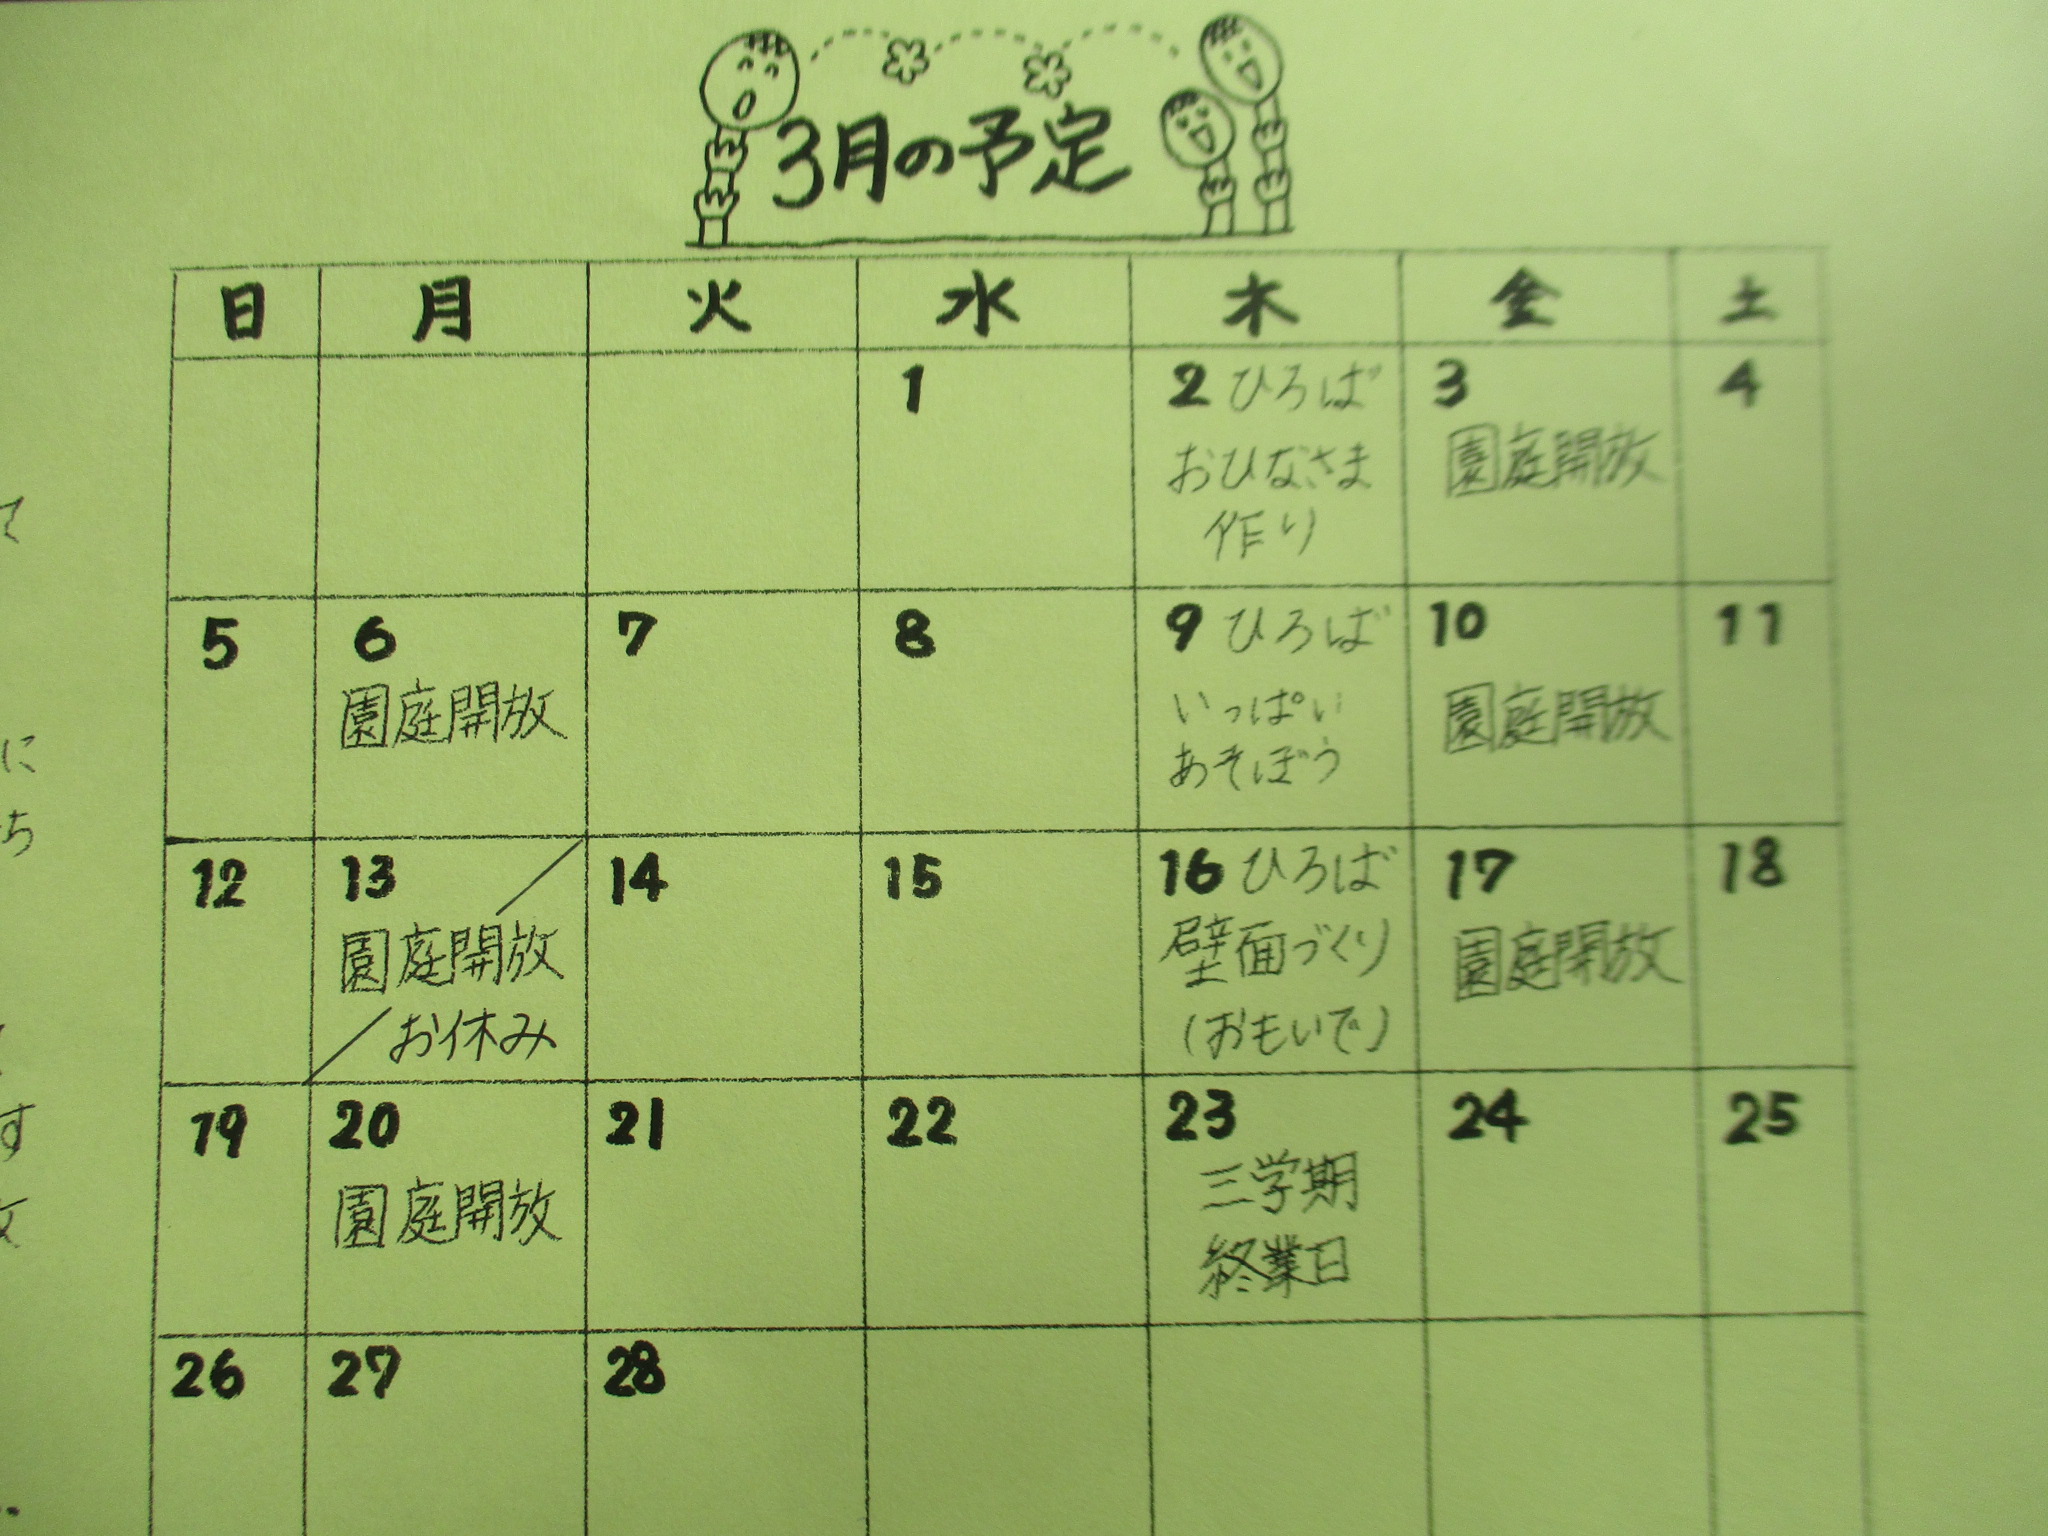 3月の予定
日 月 火 水 木 金 土
1 2 ひろば 3 4
おひなさま 園庭開放
作り
5 6 7 8 9 ひろば 10 11
園庭開放 いっぱい 園庭開放
あそぼう
12 13 14 15 16 ひろば 17 18
園庭開放 壁面づくり 園庭開放
お休み (おもいで)
19 20 21 22 23 24 25
園庭開放 三学期
終業日
26 27 28
て
に
ち
す